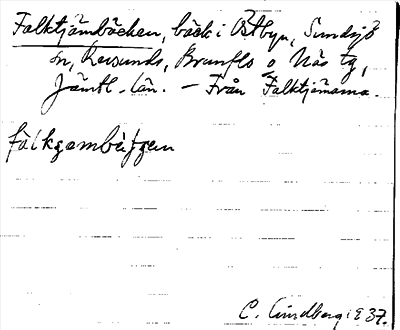 Falktjärnbäcken, bäck i Östbyn, Sundsjö
sn, Revsunds, Brunflo o Näs tg,
Jämtl. län. – Från Falktjärnarna.
C. Lindberg 1937.